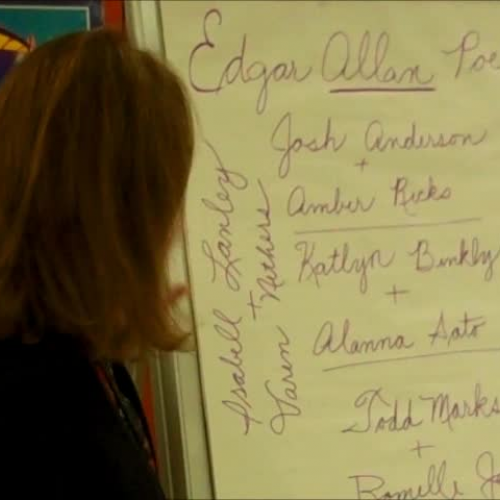 Edgar Allan Poe
Josh Anderson
+
Amber Ricks
Katlyn Binkly
+
Alanna Sato
Todd Marks
+
Romelle
Isabell Lanley
+
Karen Withers